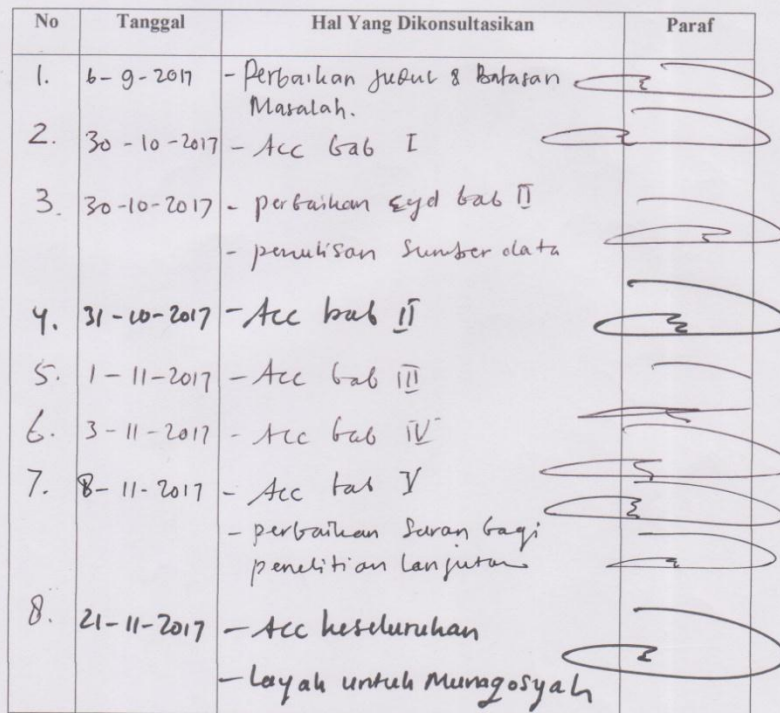 No Tanggal Hal Yang Dikonsultasikan Paraf
1. 6-9-2017 - Perbaikan Judul & Batasan
Masalah.
2. 30-10-2017 - Acc bab I
3. 30-10-2017 - perbaikan Eyd bab II
- penulisan Sumber data
4. 31-10-2017 - Acc bab II
5. 1-11-2017 - Acc bab III
6. 3-11-2017 - Acc bab IV
7. 8-11-2017 - Acc bab V
- perbaikan Saran bagi
penelitian lanjutan
8. 21-11-2017 - Acc keseluruhan
- Layak untuk Munaqosyah